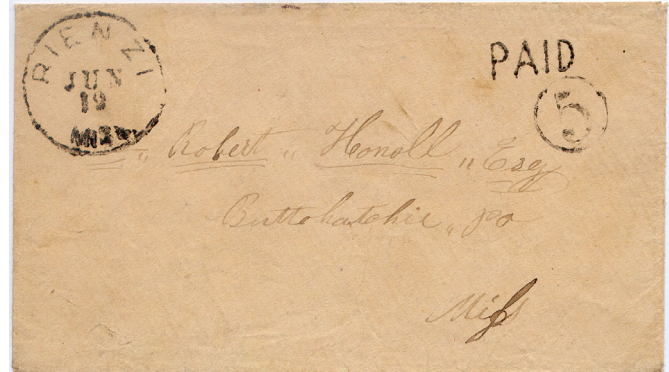 RIENZI
JUN
19
MISS.
PAID
5
" Robert " Honoll " Esq
Buttohatchie " Po
Miss